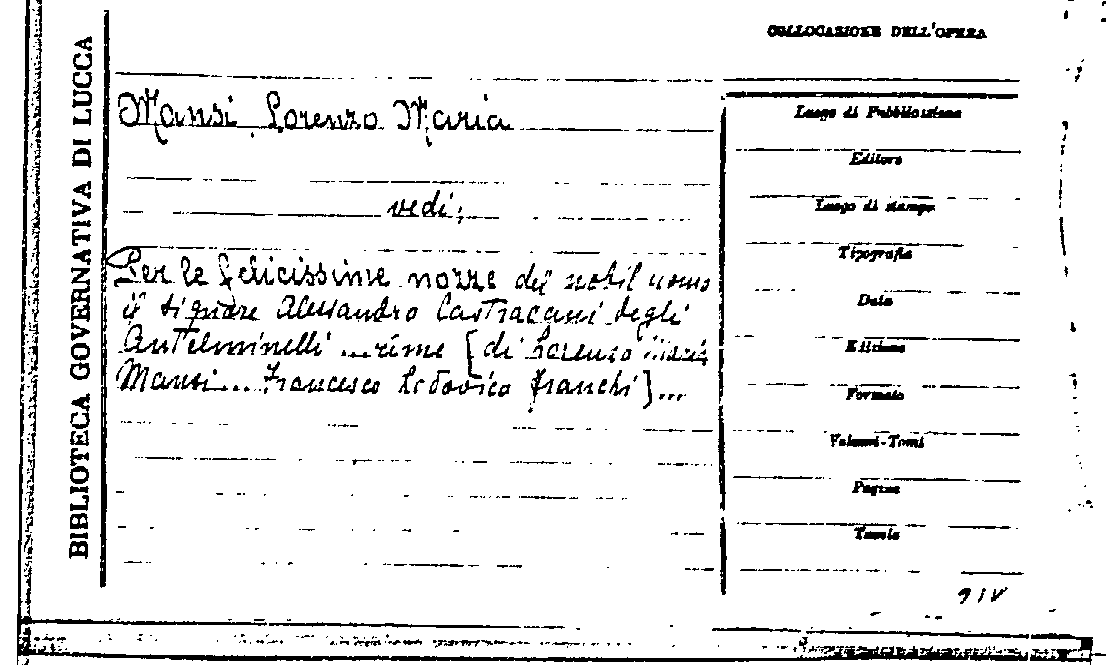 BIBLIOTECA GOVERNATIVA DI LUCCA
COLLOCAZIONE DELL'OPERA
Mansi Lorenzo Maria
vedi:
Per le felicissime nozze del nobil uomo
il signore Alessandro Castracani degli
Antelminelli ... rime [di Lorenzo Maria
Mansi... Francesco Lodovico Franchi]...
Luogo di Pubblicazione
Editore
Luogo di stampa
Tipografia
Data
Edizione
Formato
Volumi-Tomi
Pagine
Tavole